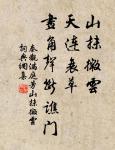 山抹微雲
天連衰草
畫角聲斷譙門
秦觀滿庭芳山抹微雲
詞典網集